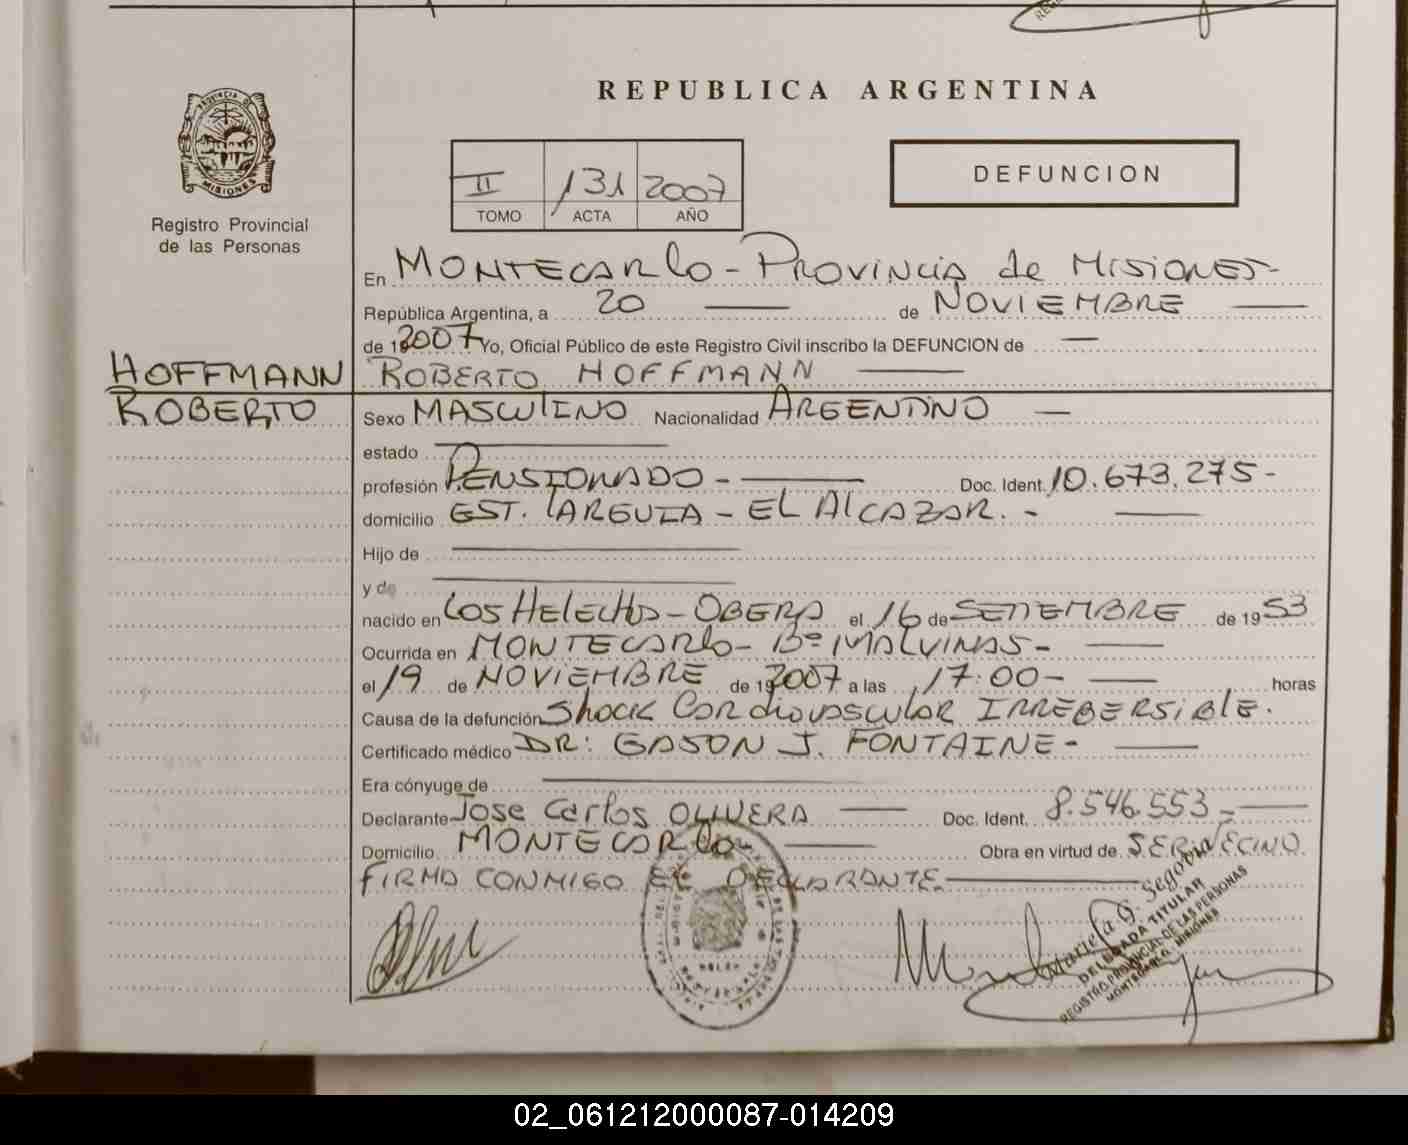 REPUBLICA ARGENTINA
PROVINCIA DE
MISIONES
Registro Provincial
de las Personas
II 131 2007
TOMO ACTA AÑO
DEFUNCION
En MONTECARLO - PROVINCIA de MISIONES-
República Argentina, a 20 de NOVIEMBRE
de 12007 Yo, Oficial Público de este Registro Civil inscribo la DEFUNCION de
HOFFMANN
ROBERTO
ROBERTO HOFFMANN
Sexo MASCULINO Nacionalidad ARGENTINO
estado
profesión PENSIONADO - Doc. Ident. 10.673.275-
domicilio EST. - EL ALCAZAR. -
Hijo de
y de
nacido en LOS HELECHOS - OBERA el 16 de SETIEMBRE de 1953
Ocurrida en MONTECARLO - Bº MALVINAS -
el 19 de NOVIEMBRE de 192007 a las 17:00- horas
Causa de la defunción Shock CARDIOVASCULAR IRREBERSIBLE.
Certificado médico DR: GASON J. FONTAINE -
Era cónyuge de
Declarante Jose Carlos OLIVERA Doc. Ident. 8.546.553 -
Domicilio MONTECARLO - Obra en virtud de SER VECINO.
FIRMA CONMIGO EL DECLARANTE
Mariela G. Segovia
DELEGADA TITULAR
REGISTRO PROVINCIAL DE LAS PERSONAS
MONTECARLO - MISIONES
02_061212000087-014209